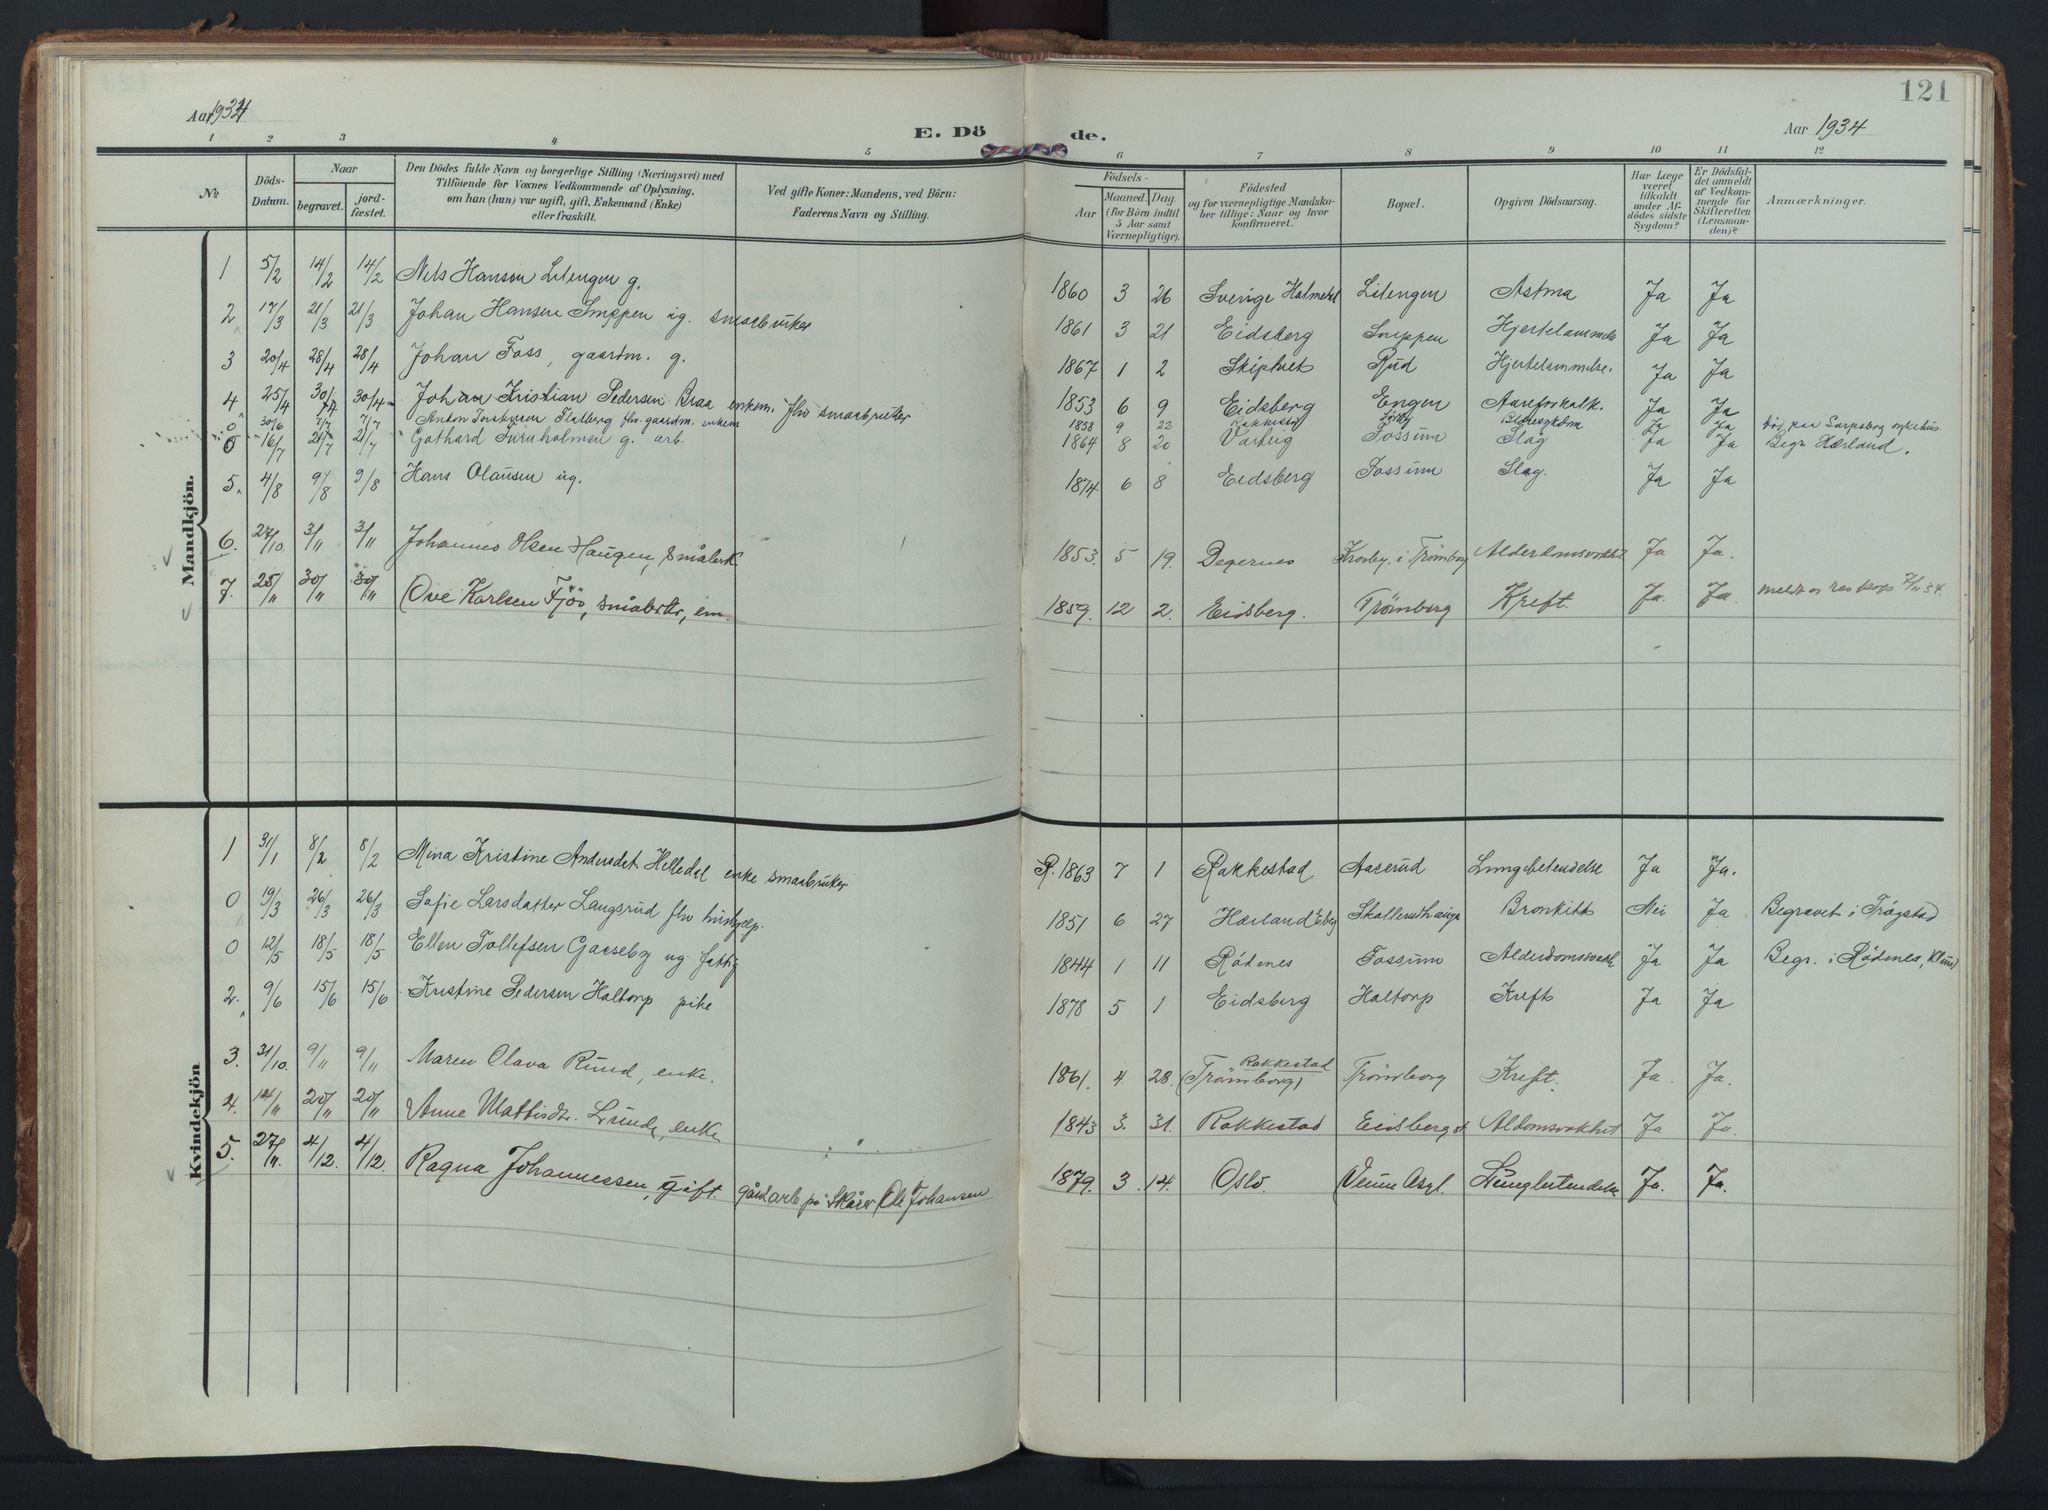 Aar 1934
E. Döde.
Aar 1934
121
1 2 3 4 5 6 7 8 9 10 11 12
No
Döds-Datum.
Naar
begravet.
jord-fæstet.
Den Dödes fulde Navn og borgerlige Stilling (Næringsvei) med
Tilföiende for Voxnes Vedkommende af Oplysning,
om han (hun) var ugift, gift, Enkemand (Enke)
eller fraskilt.
Ved gifte Koner: Mandens, ved Börn:
Faderens Navn og Stilling.
Födsels-
Aar
Maaned. Dag.
(for Börn indtil
5 Aar samt
Værnepligtige).
Födested
og for værnepligtige Mandska-
ber tillige: Naar og hvor
Konfirmeret.
Bopæl.
Opgiven Dödsaarsag.
Har Læge
været
tilkaldt
under Af-
dödes sidste
Sygdom?
Er Dödsfal-
det anmeldt
af Vedkom-
mende for
Skifteretten
(Lensman-
den)?
Anmærkninger.
Mandkjön.
1 5/2 14/2 14/2 Nels Hansen Lilengen g. 1860 3 26 Sverige Lilengen Astma Ja Ja
2 17/3 21/3 21/3 Johan Hansen Snippen ug. smaabruker 1861 3 21 Eidsberg Snippen Hjertelammelse Ja Ja
3 20/4 28/4 28/4 Johan Foss, gaardm. g. 1867 1 2 Skiptvet Rud Hjertelammelse. Ja Ja
4 25/4 30/4 30/4 Johan Kristian Pedersen Braa enkem. fhv smaabruker 1853 6 9 Eidsberg Engen Aareforkalk. Ja Ja
0 30/6 7/7 7/7 Anton Torstensen Flatberg fhv. gaardm. enkem 1858 9 22 Rakkestad Blæresygdom Ja Ja död paa Sarpsborg sykehus.
0 16/7 21/7 21/7 Gothard Furuholmen g. arb. 1864 8 20 Varteig Fossum Slag Ja Ja Begr. Hærland.
5 4/8 9/8 9/8 Hans Olausen ug. 1874 6 8 Eidsberg Fossum Slag. Ja Ja
6. 27/10. 3/11 3/11 Johannes Olsen Haugen, småbrk 1853. 5 19. Degernes Krosby i Trömborg Alderdomsvakhet Ja Ja.
7. 25/11 30/11 30/11 Ove Karlsen Fjös, småbrkr, em. 1859. 12 2. Eidsberg. Trömborg Kreft. Ja. Ja.
Kvindekjön
1 31/1 8/2 8/2 Mina Kristine Andersdat. Helledal enke smaabruker R. 1863 7 1 Rakkestad Aaserud Lungebetendelse Ja Ja.
0 19/3 26/3 26/3 Sofie Larsdatter Langsrud fhv hushjelp. 1851 6 27 Hærland Eidsberg Skallerudhaugen Bronkitt Nei Ja Begravet i Trögstad
0 12/5 18/5 18/5 Ellen Tollefsen Gaaseby ug fattig 1844 1 11 Rödenes Fossum Alderdomssvakh Ja Ja Begr. i Rödenes,
2. 9/6 15/6 15/6 Kristine Pedersen Haltorp pike 1878 5 1 Eidsberg Haltorp Kreft Ja Ja
3. 31/10. 9/11 9/11 Maren Olava Ruud, enke. 1861. 4. 28. Rakkestad (Trömborg) Trömborg Kreft. Ja. Ja.
4. 14/11 20/11 20/11 Anne Mattisdtr. Lunde, enke 1843 3. 31. Rakkestad Eidsberg st Aldomsvakhet Ja Ja.
5. 27/11. 4/12. 4/12. Ragna Johannessen, gift. gårdarb på Skåier Ole Johansen 1879. 3. 14. Oslo. Venne Asyl. Lungbetendelse Ja. Ja.